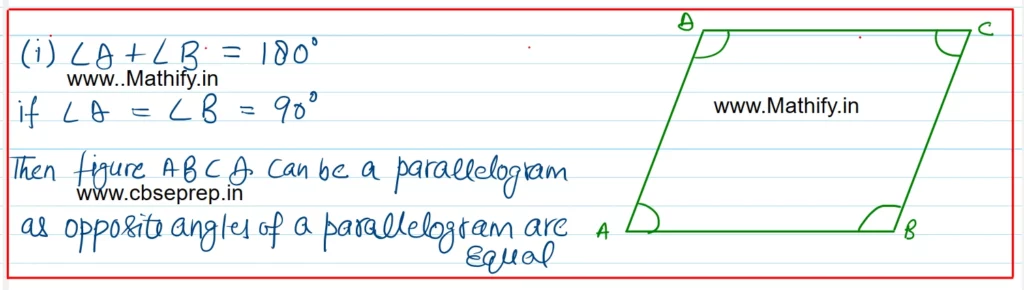 (i) ∠D + ∠B = 180°
www..Mathify.in
if ∠D = ∠B = 90°
Then figure ABCD can be a parallelogram
www.cbseprep.in
as opposite angles of a parallelogram are
Equal
D
C
www.Mathify.in
A
B